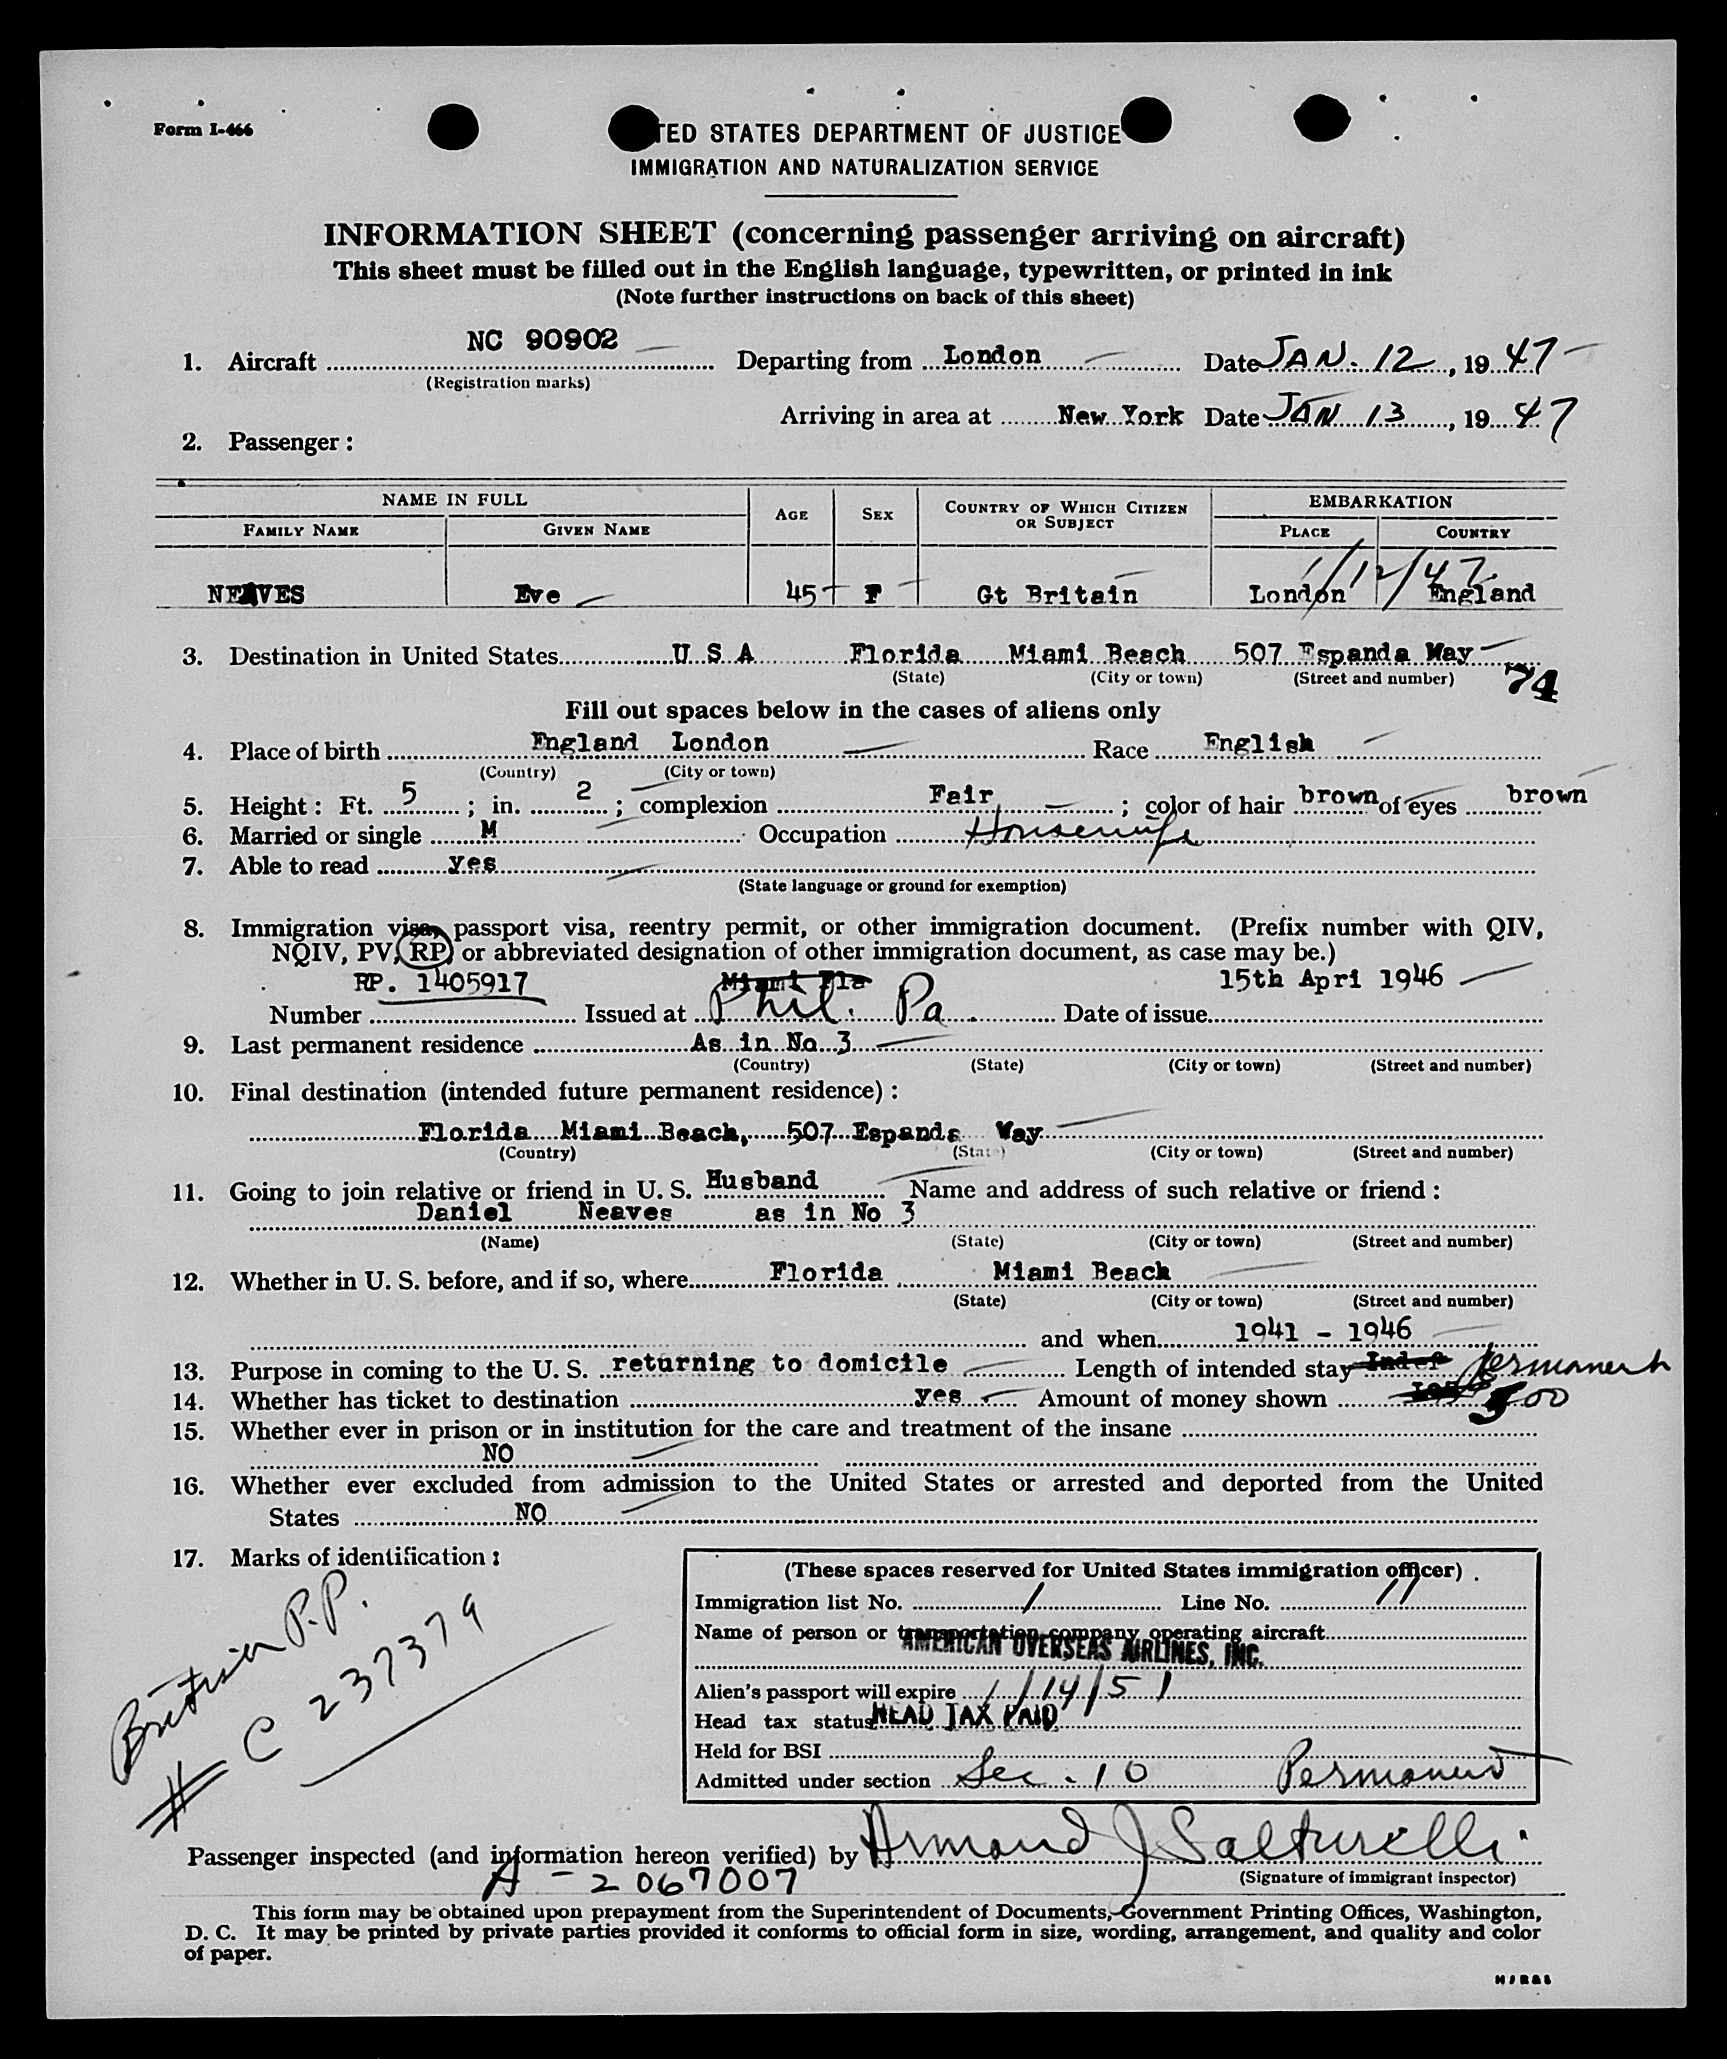 Form I-466
TED STATES DEPARTMENT OF JUSTICE
IMMIGRATION AND NATURALIZATION SERVICE
INFORMATION SHEET (concerning passenger arriving on aircraft)
This sheet must be filled out in the English language, typewritten, or printed in ink
(Note further instructions on back of this sheet)
1. Aircraft NC 90902 Departing from London Date JAN. 12, 1947
(Registration marks)
Arriving in area at New York Date JAN 13, 1947
2. Passenger:
NAME IN FULL AGE SEX COUNTRY OF WHICH CITIZEN OR SUBJECT EMBARKATION
FAMILY NAME GIVEN NAME PLACE COUNTRY
1/12/47
NEAVES Eve 45 F Gt Britain London England
3. Destination in United States U S A Florida Miami Beach 507 Espanda Way
(State) (City or town) (Street and number) 74
Fill out spaces below in the cases of aliens only
4. Place of birth England London Race English
(Country) (City or town)
5. Height: Ft. 5; in. 2; complexion Fair; color of hair brown of eyes brown
6. Married or single M Occupation Housewife
7. Able to read yes
(State language or ground for exemption)
8. Immigration visa, passport visa, reentry permit, or other immigration document. (Prefix number with QIV,
NQIV, PV, RP, or abbreviated designation of other immigration document, as case may be.)
RP. 1405917 Miami Fla 15th Apri 1946
Number Issued at Phil. Pa. Date of issue
9. Last permanent residence As in No 3
(Country) (State) (City or town) (Street and number)
10. Final destination (intended future permanent residence):
Florida Miami Beach, 507 Espanda Way
(Country) (State) (City or town) (Street and number)
11. Going to join relative or friend in U. S. Husband Name and address of such relative or friend:
Daniel Neaves as in No 3
(Name) (State) (City or town) (Street and number)
12. Whether in U. S. before, and if so, where Florida Miami Beach
(State) (City or town) (Street and number)
and when 1941 - 1946
13. Purpose in coming to the U. S. returning to domicile Length of intended stay Indef Permanent
14. Whether has ticket to destination yes Amount of money shown 500
15. Whether ever in prison or in institution for the care and treatment of the insane
NO
16. Whether ever excluded from admission to the United States or arrested and deported from the United
States NO
17. Marks of identification:
British P.P.
# C 237379
(These spaces reserved for United States immigration officer)
Immigration list No. 1 Line No. 11
Name of person or transportation company operating aircraft
AMERICAN OVERSEAS AIRLINES, INC.
Alien's passport will expire 1/14/51
Head tax status HEAD TAX PAID
Held for BSI
Admitted under section Sec. 10 Permanent
Passenger inspected (and information hereon verified) by Armand J Salturelli
A-2067007 (Signature of immigrant inspector)
This form may be obtained upon prepayment from the Superintendent of Documents, Government Printing Offices, Washington,
D. C. It may be printed by private parties provided it conforms to official form in size, wording, arrangement, and quality and color
of paper.